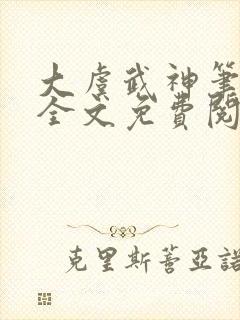 大虞武神笔
全文免費閱
克里斯蒂亞諾